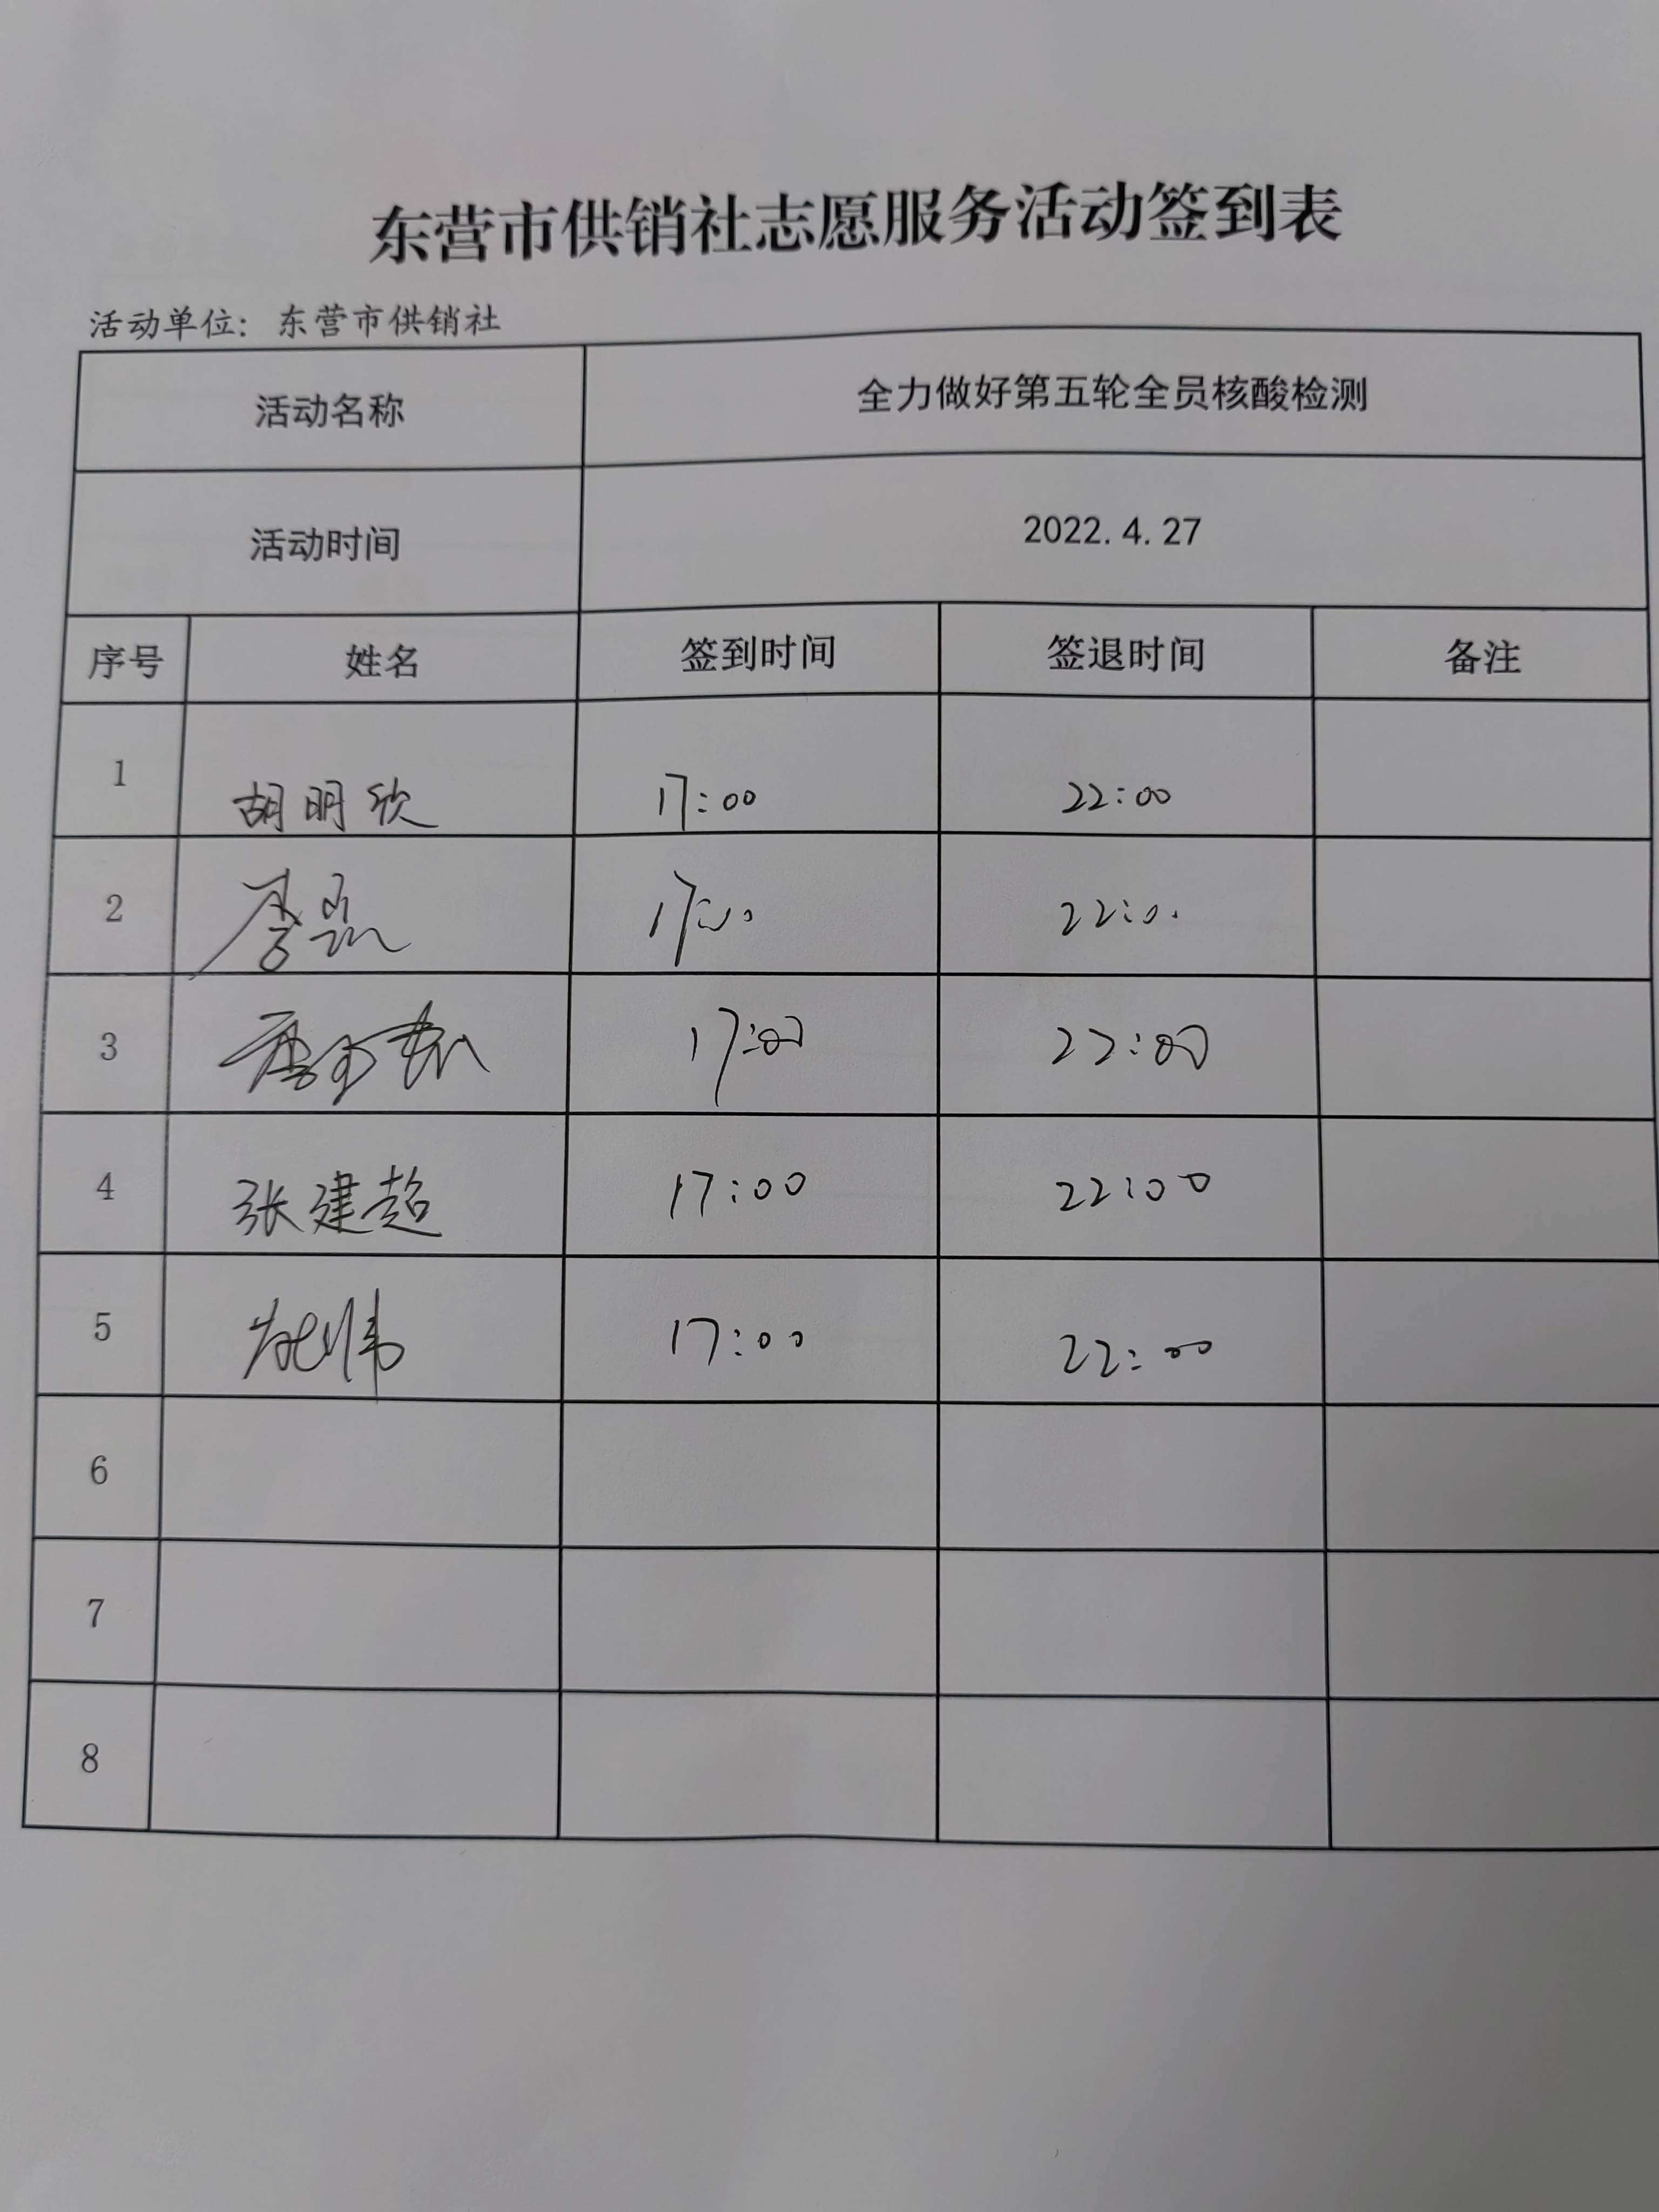 东营市供销社志愿服务活动签到表
活动单位：东营市供销社
活动名称 全力做好第五轮全员核酸检测
活动时间 2022.4.27
序号 姓名 签到时间 签退时间 备注
1 胡明欣 17:00 22:00
2 17:00 22:00
3 17:00 22:00
4 张建超 17:00 22:00
5 17:00 22:00
6
7
8